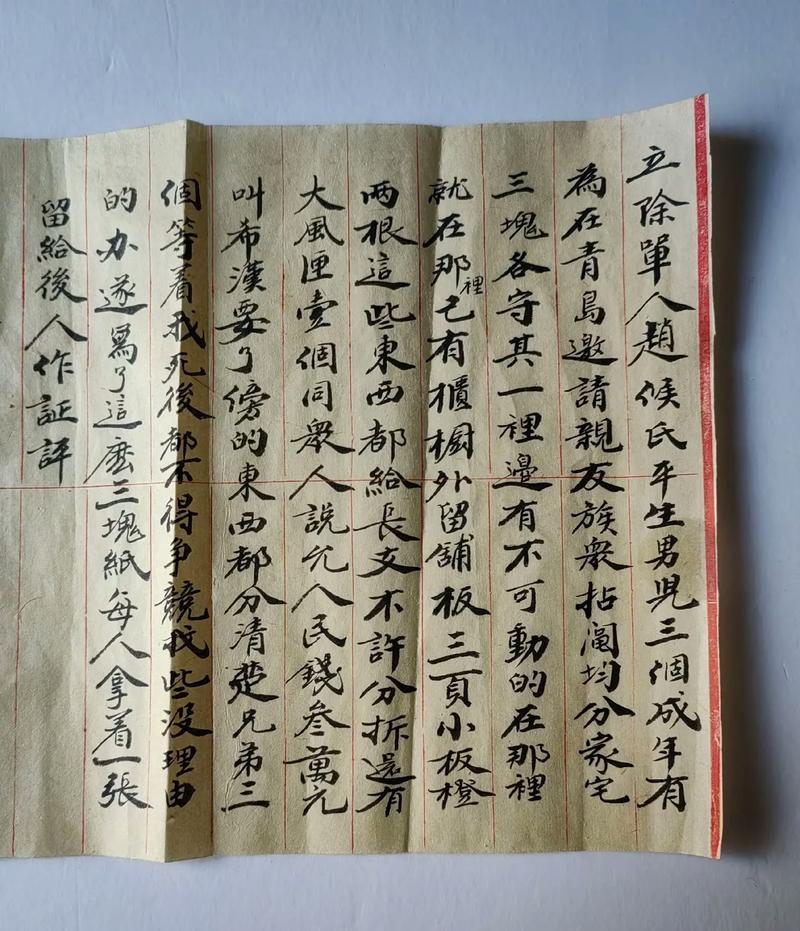 立除單人趙侯氏平生男児三個成年有
為在青島邀請親友族衆拈阄均分家宅
三塊各守其一裡邊有不可動的在那裡
就在那裡已有櫃橱外留舖板三頁小板橙
两根這些東西都給長支不許分拆還有
大風匣壹個同衆人説允人民錢叁萬元
叫希漢要了傍的東西都分清楚兄弟三
個等着我死後都不得争競找些没理由
的办遂寫了這麽三塊紙每人拿着一張
留給後人作証評